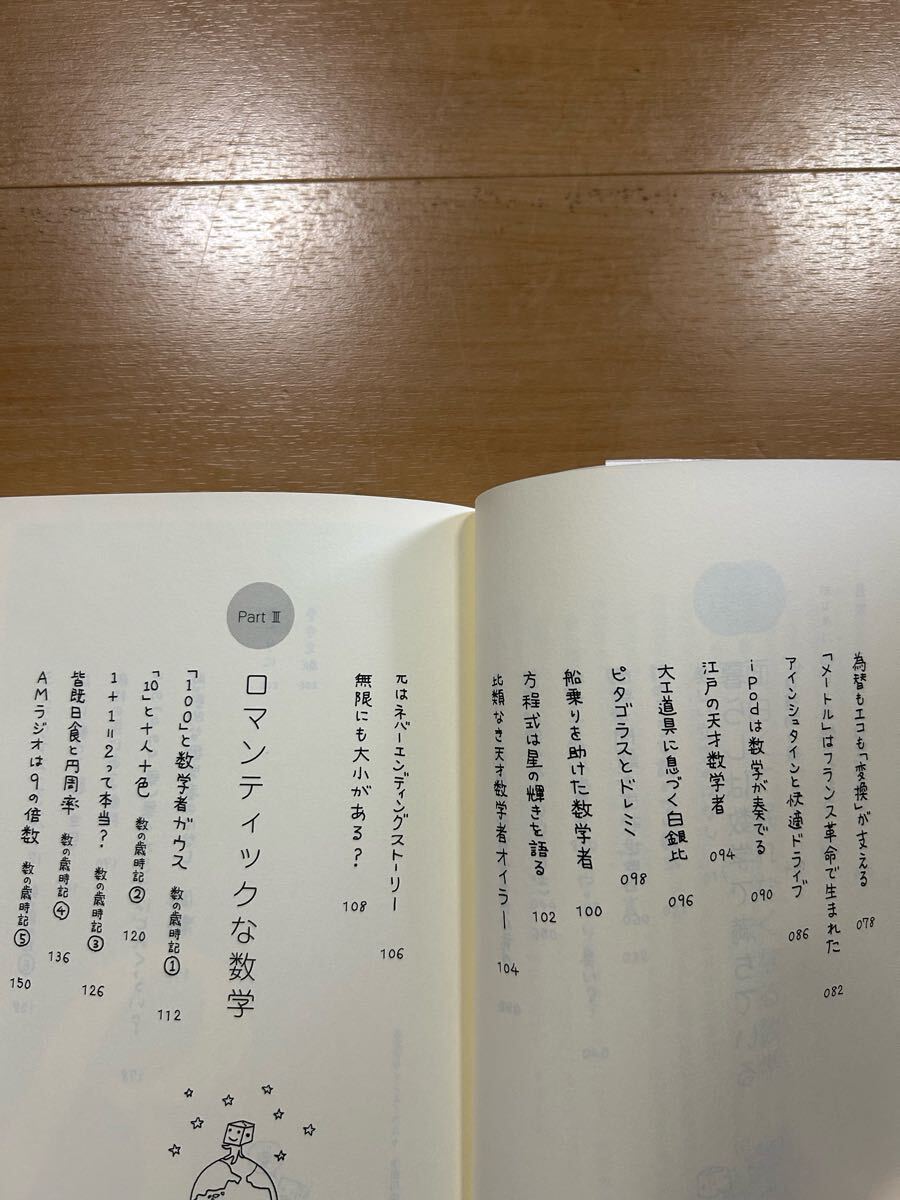 為替もエコも「変換」が支える 078
「メートル」はフランス革命で生まれた 082
アインシュタインと快適ドライブ 086
iPodは数学が奏でる 090
江戸の天才数学者 094
大工道具に息づく白銀比 096
ピタゴラスとドレミ 098
船乗りを助けた数学者 100
方程式は星の輝きを語る 102
比類なき天才数学者オイラー 104
πはネバーエンディングストーリー 106
無限にも大小がある? 108
Part Ⅲ
ロマンティックな数学
「100」と数学者ガウス 数の歳時記① 112
「10」と十人十色 数の歳時記② 120
1+1=2って本当? 数の歳時記③ 126
皆既日食と円周率 数の歳時記④ 136
AMラジオは9の倍数 数の歳時記⑤ 150